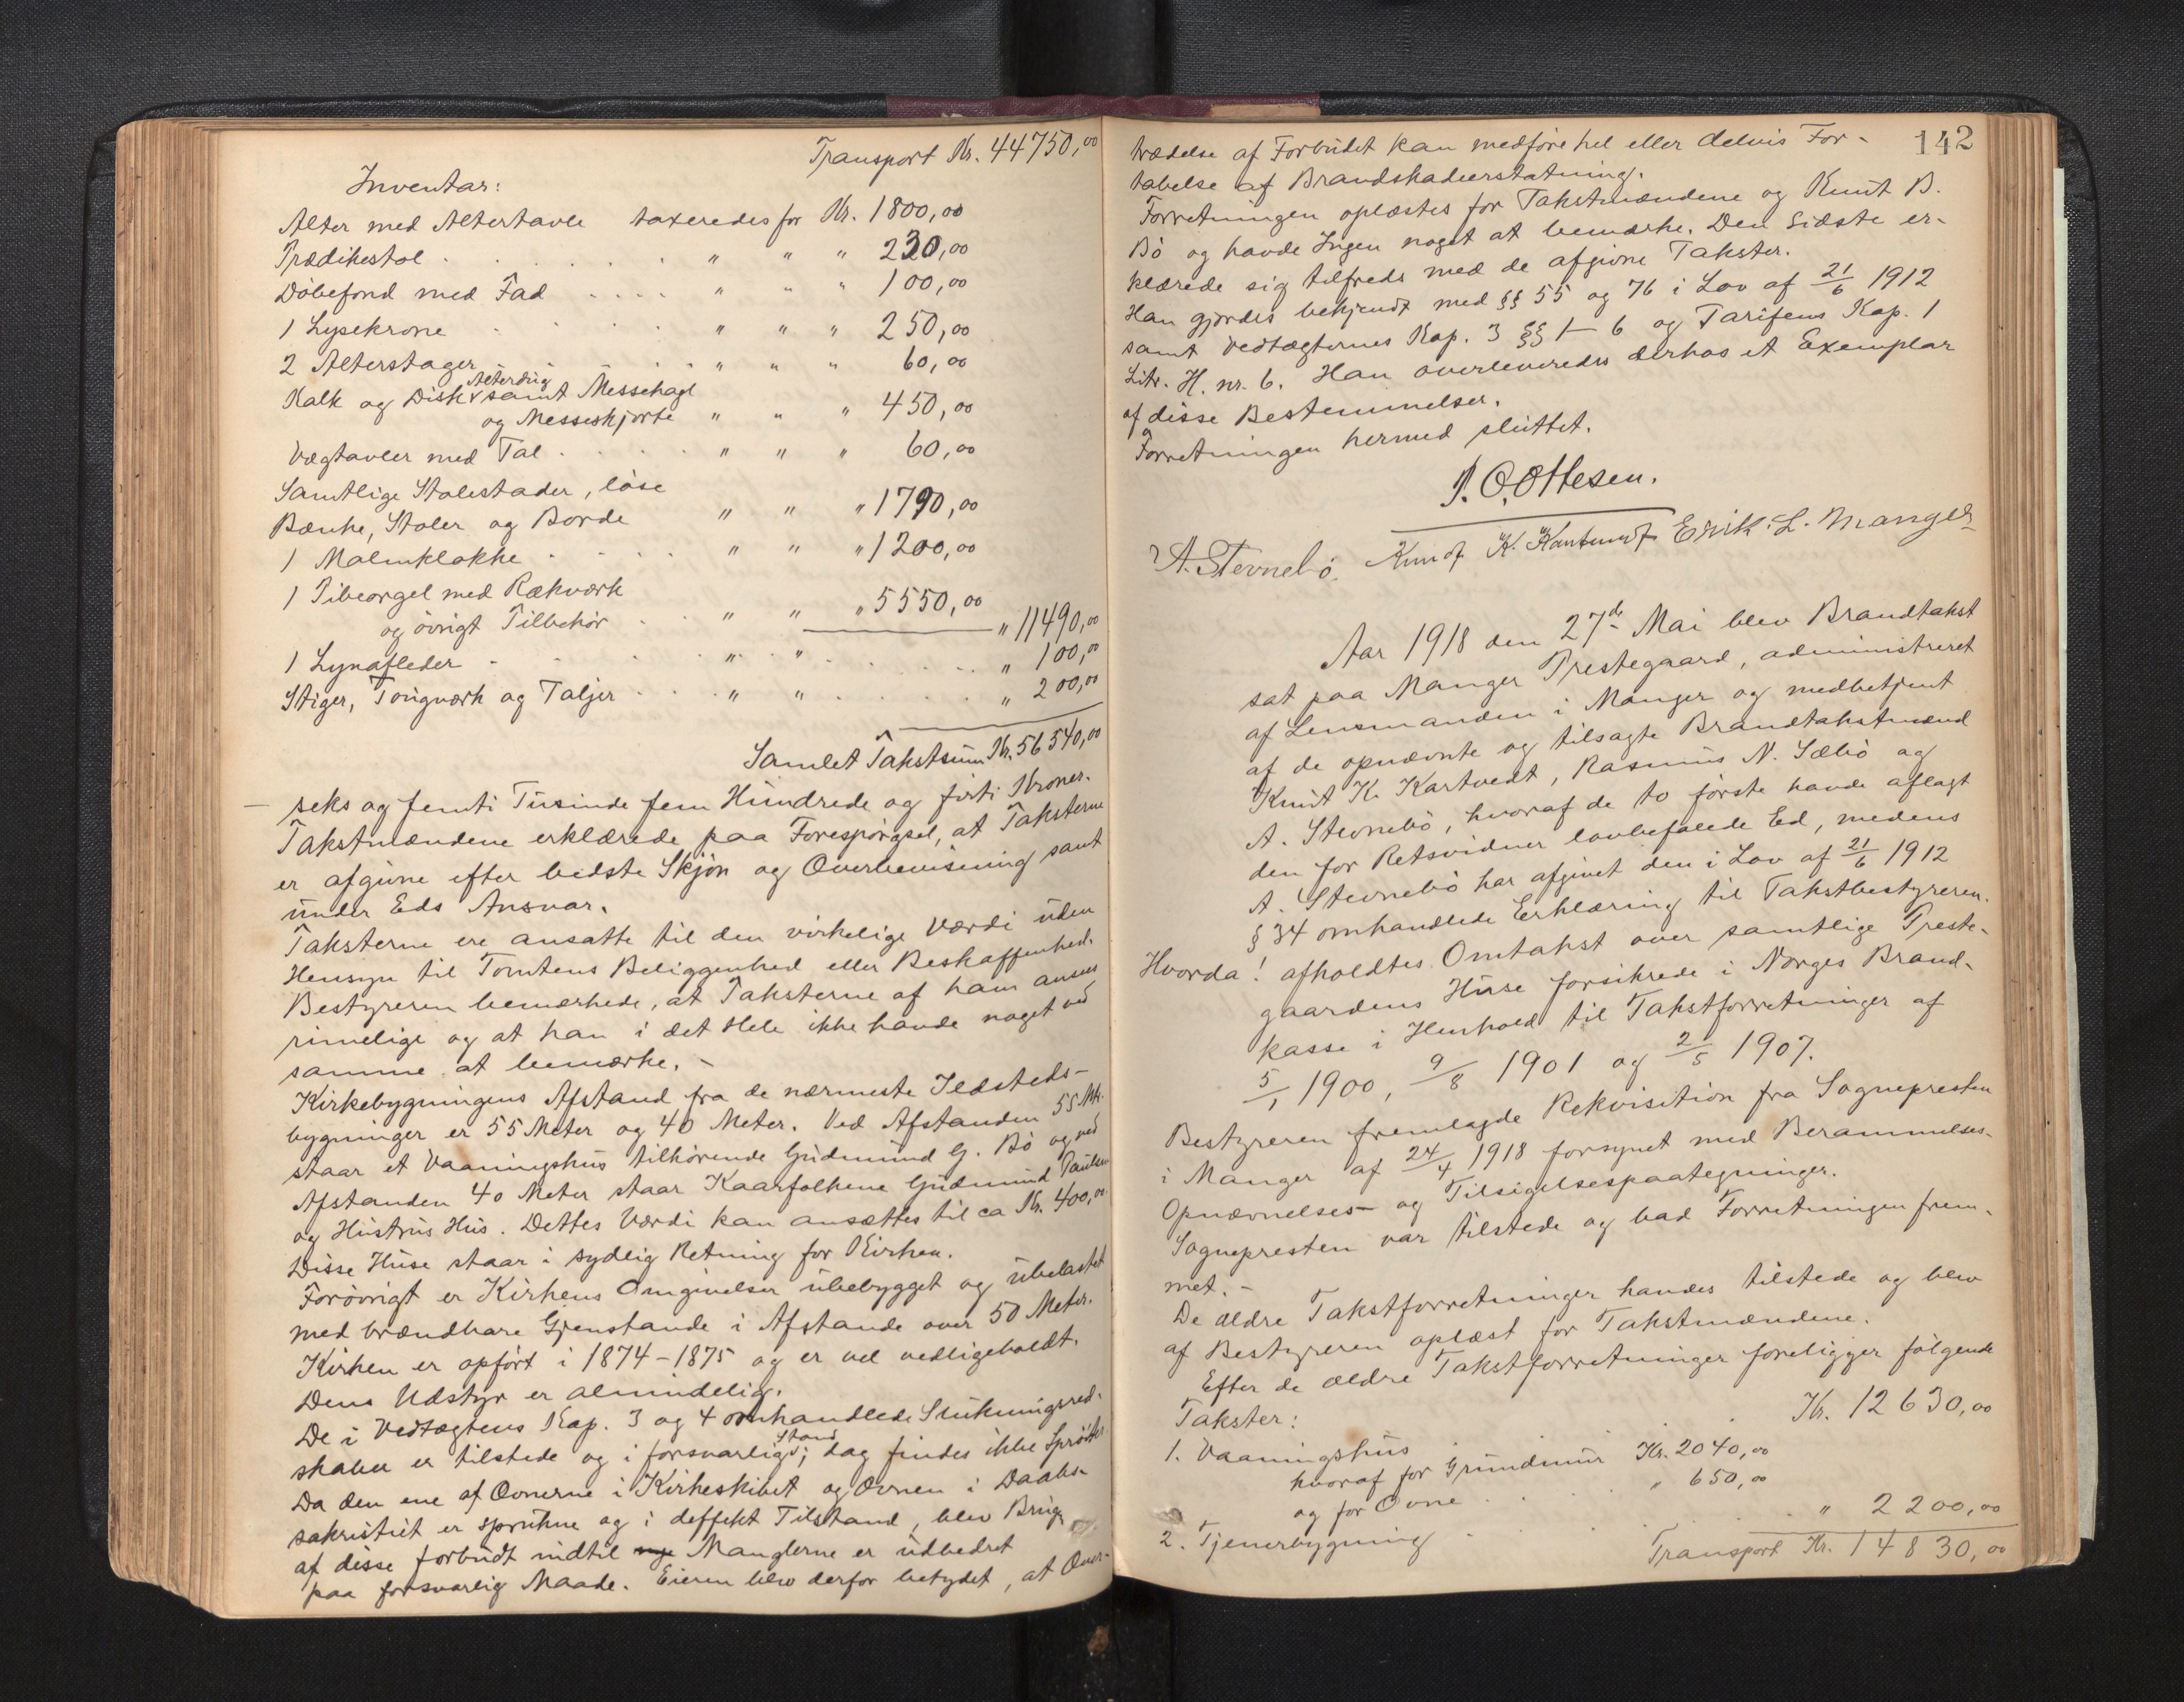 Transport Kr. 44750,00
Inventar:
Alter med Altertavle taxeredes for Kr. 1800,00
Prædikestol . . . . . . " " " 230,00
Döbefond med Fad . . . . " " " 100,00
1 Lysekrone . . . . " " " 250,00
2 Alterstager . . . . " " " 60,00
Kalk og Disk, Alterdug samt Messehagl
og Messeskjorte " " " 450,00
Vægtavler med Tal . . . . " " " 60,00
Samtlige Stolestader, löse
Bænke, Stoler og Borde " " " 1790,00
1 Malmklokke . . . . " " " 1200,00
1 Pibeorgel med Rækværk
og övrigt Tilbehör . . " " " 5550,00 " 11490,00
1 Lynafleder . . . . " " . . . . " 100,00
Stiger, Tougværk og Taljer . . . " " . . . . " 200,00
Samlet Takstsum Kr. 56540,00
— seks og femti Tusinde fem Hundrede og förti Kroner.
Takstmændene erklærede paa Forespörgsel, at Taksterne
er afgivne efter bedste Skjön og Overbevisning samt
under Eds Ansvar.
Taksterne ere ansatte til den virkelige Værdi uden
Hensyn til Tomtens Beliggenhed eller Beskaffenhed.
Bestyreren bemærkede, at Taksterne af ham ansees
rimelige og at han i det Hele ikke havde noget ved
samme at bemærke. –
Kirkebygningens Afstand fra de nærmeste Ildsteds-
bygninger er 55 Meter og 40 Meter. Ved Afstanden 55 Mtr.
staar et Vaaningshus tilhörende Gudmund G. Bö og ved
Afstanden 40 Meter staar Kaarfolkene Gudmund Paulsen
og Hustrus Hus. Dettes Værdi kan ansættes til ca Kr. 400,00
Disse Huse staar i sydlig Retning for Kirken.
Forövrigt er Kirkens Omgivelser ubebygget og ubelastet
med brændbare Gjenstande i Afstande over 50 Meter.
Kirken er opfört i 1874-1875 og er vel vedligeholdt.
Dens Udstyr er almindelig.
De i Vedtægtens Kap. 3 og 4 omhandlede Slukningsred-
skaber er tilstede og i forsvarlig Stand; dog findes ikke Spröiter
Da den ene af Ovnerne i Kirkeskibet og Ovnen i Daabs-
sakristiet er sprukne og i deffekt Tilstand, blev Brug
af disse forbudt indtil Manglerne er udbedret
paa forsvarlig Maade. Eieren blev derfor betydet, at Over-
142
trædelse af Forbudet kan medföre hel eller delvis For-
tabelse af Brandskadeerstatning.
Forretningen oplæstes for Takstmændene og Knut B.
Bö og havde Ingen noget at bemærke. Den sidste er-
klærede sig tilfreds med de afgivne Takster.
Han gjordes bekjendt med §§ 55 og 76 i Lov af 21/6 1912
samt Vedtægternes Kap. 3 §§ 1-6 og Tarifens Kap. 1
Litr. H. nr. 6. Han overleveredes derhos et Exemplar
af disse Bestemmelser.
Forretningen hermed sluttet.
P. O. Ottesen.
A. Stevnebö. Knut K. Kartveit Erik L. Manger
Aar 1918 den 27de Mai blev Brandtakst
sat paa Manger Prestegaard, administreret
af Lensmanden i Manger og medbetjent
af de opnævnte og tilsagte Brandtakstmænd
Knut K. Kartvedt, Rasmus N. Sæbö og
A. Stevnebö, hvoraf de to förste havde aflagt
den for Retsvidner lovbefalede Ed, medens
A. Stevnebö har afgivet den i Lov af 21/6 1912
§ 34 omhandlede Erklæring til Takstbestyreren.
Hvorda! afholdtes Omtakst over samtlige Preste-
gaardens Huse forsikrede i Norges Brand-
kasse i Henhold til Takstforretninger af
5/1 1900, 9/8 1901 og 2/5 1907.
Bestyreren fremlagde Rekvisition fra Sognepresten
i Manger af 24/4 1918 forsynet med Berammelses-
Opnævnelses- og Tilsigelsespaategninger.
Sognepresten var tilstede og bad Forretningen frem-
met. –
De ældre Takstforretninger havdes tilstede og blev
af Bestyreren oplæst for Takstmændene.
Efter de ældre Takstforretninger foreligger fölgende
Takster:
1. Vaaningshus . . . Kr. 12630,00
hvoraf for Grundmur Kr. 2040,00
og for Ovne . . . . " 650,00
2. Tjenerbygning . . . . " 2200,00
Transport Kr. 14830,00